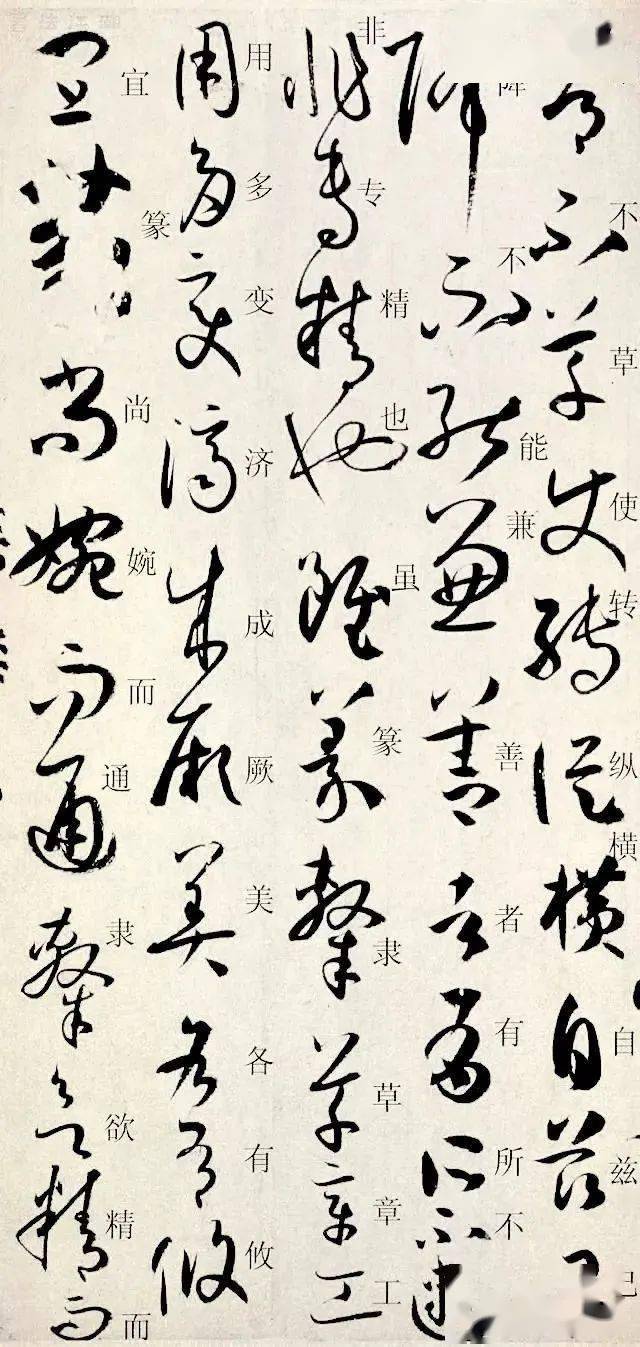 不草使转纵横自兹已
降不能兼善者有所不逮
非专精也虽篆隶草章工
用多变济成厥美各有攸
宜篆尚婉而通隶欲精而